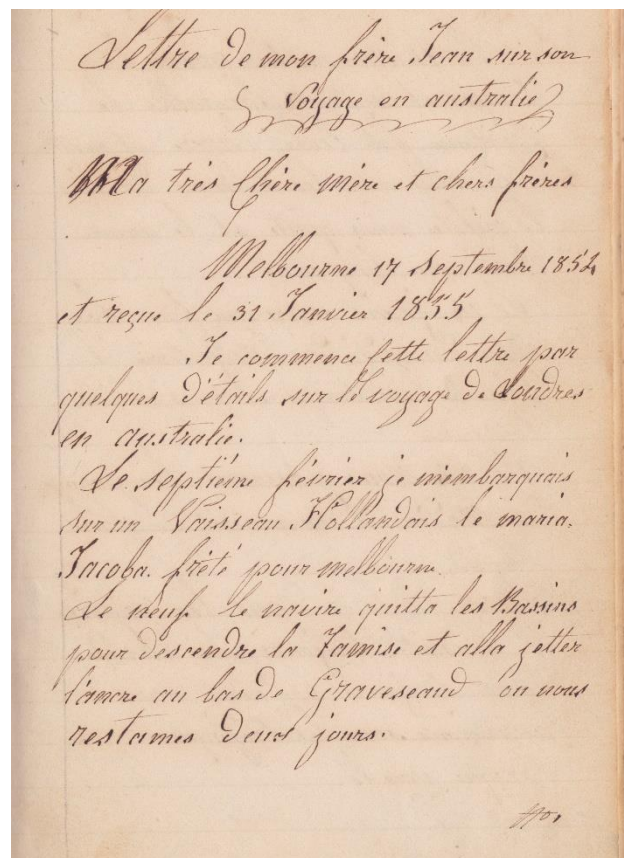 Lettre de mon frère Jean sur son
Voyage en australie
Ma très Chère mère et chers frères
Melbourne 17 Septembre 1854
et reçue le 31 Janvier 1855
Je commence cette lettre par
quelques détails sur le voyage de Londres
en australie.
Le septième février je m'embarquais
sur un Vaisseau Hollandais le maria.
Jacoba. frété pour melbourne.
Le neuf le navire quitta les Bassins
pour descendre la Tamise et alla jetter
l'ancre au bas de Graveseand ou nous
restames deux jours.